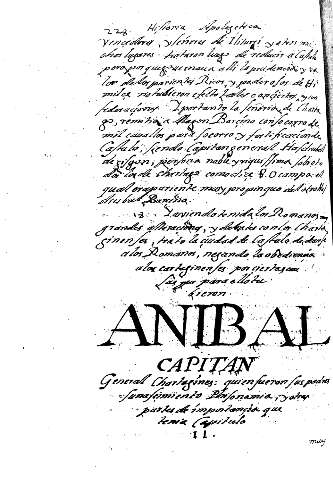 224 Historia Apologetica
vencedores, y señores de Iliturgi y otros mu
chos lugares trataron luego de reducir a Castulo
pero por que
lor de los parientes Ricos, y poderosos de Hi
milce no tubieron efecto
federaciones. Y por tanto la señoria de Charta
go, remitio a Magon Barcino con socorro de
mil cavallos para socorro, y fortificacion de
Castulo; siendo Capitan general Hasdrubal
de Gisgon, persona noble y riquissima
de Chartago como dize F. Ocampo. el
qual era pariente muy propinquo del
Barcino.
13. Haviendo tenido los Romanos,
grandes y debates con los Charta
ginenses, trato la ciudad de Castulo de darse
a los Romanos, negando la obediencia
a los cartaginenses por ciertas cau
sas que para ello tu
bieron
ANIBAL
CAPITAN
General Chartagines: quien fueron sus padres
su nascimiento Phisonomia, y otras
partes de importancia que
tenia Capitulo
11.
muy